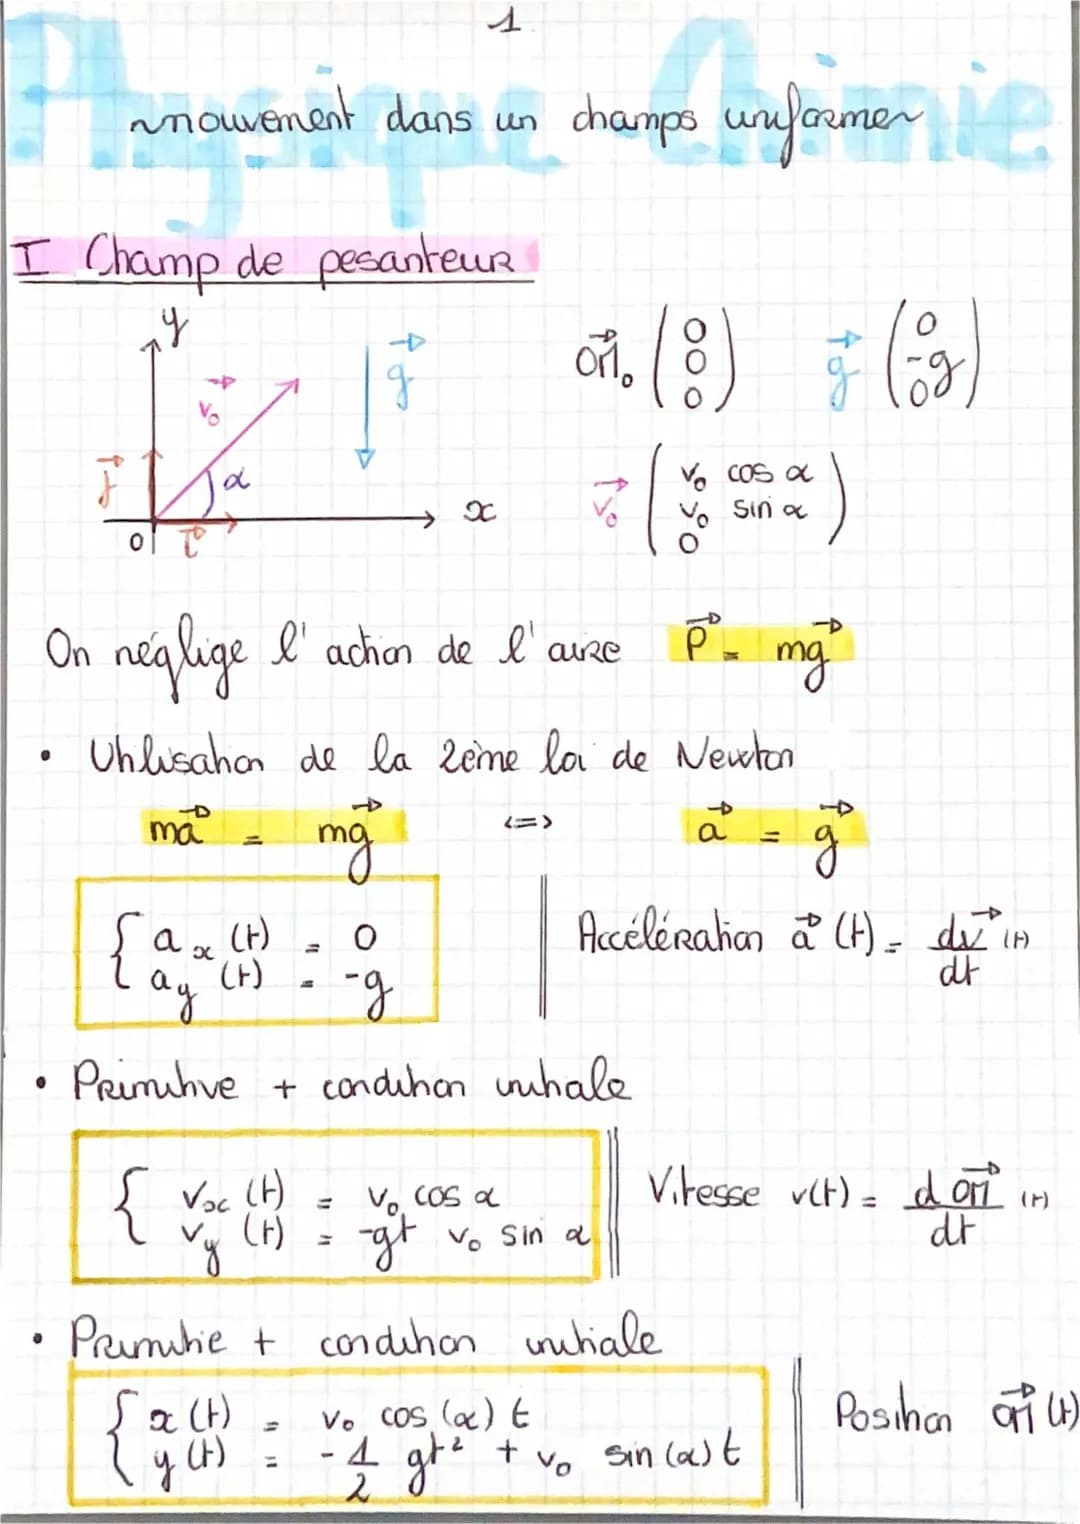 1
Physique Chimie
mouvement dans un champs uniforme
I Champ de pesanteur
y
v₀→
g→
α
j→
i→
0
x
OM₀→ (0 0 0)
g→ (0 -g 0)
v₀→ (v₀ cos α v₀ sin α 0)
On néglige l'action de l'aire P→ = mg→
• Utilisation de la 2ème loi de Newton
ma→ = mg→ <=> a→ = g→
{ aₓ(t) = 0
a_y(t) = -g
Accélération a→(t) = dv→(t)/dt
• Primitive + condition initiale
{ vₓ(t) = v₀ cos α
v_y(t) = -gt v₀ sin α
Vitesse v(t) = d OM→(t)/dt
• Primitie + condition initiale
{ x(t) = v₀ cos(α)t
y(t) = -1/2 gt² + v₀ sin(α)t
Position OM→(t)